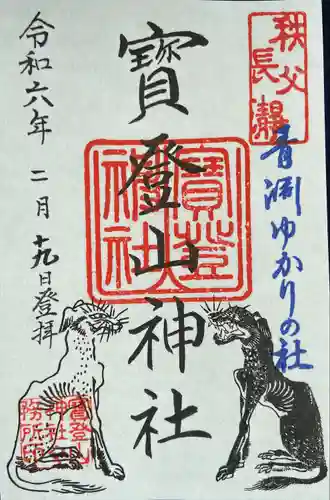 秩父
長瀞
青淵ゆかりの社
寶登山神社
令和六年 二月 十九日登拝
寶登山
神社
務所印